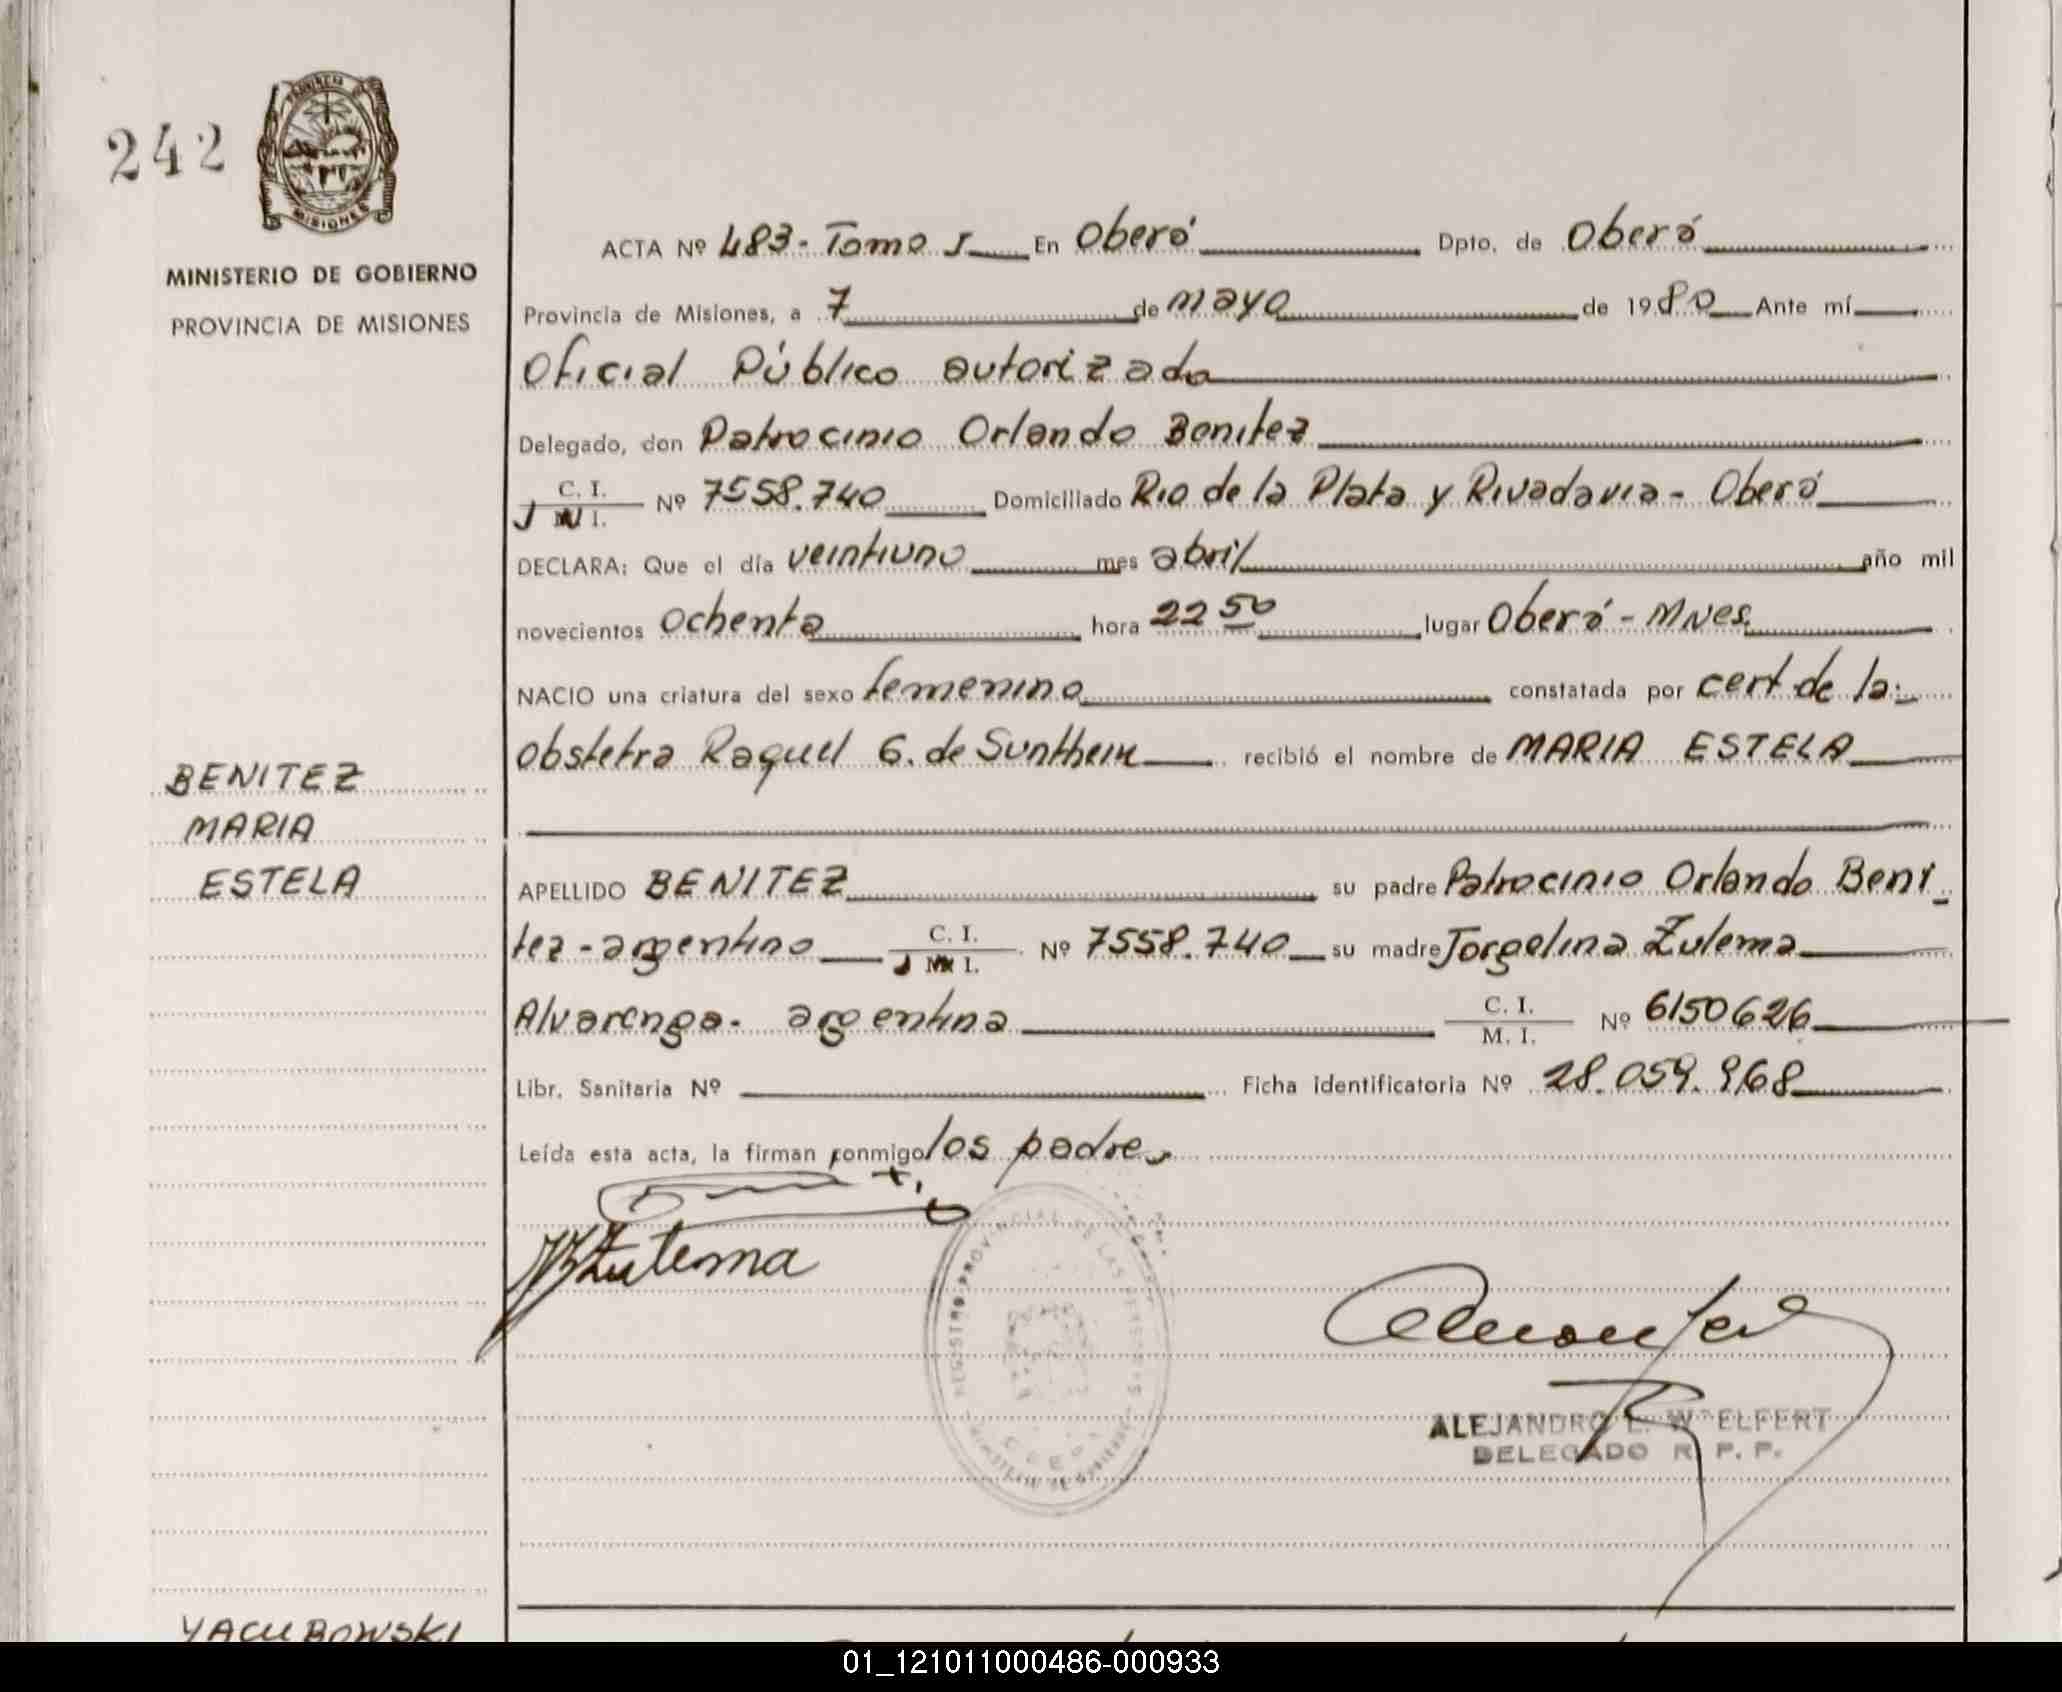 242
PROVINCIA DE
MISIONES
MINISTERIO DE GOBIERNO
PROVINCIA DE MISIONES
ACTA Nº 483- Tomo I En Oberá Dpto. de Oberá
Provincia de Misiones, a 7 de mayo de 1980 Ante mí
Oficial Público autorizado
Delegado, don Patrocinio Orlando Benitez
C. I.
M. I. Nº 7558.740 Domiciliado Rio de la Plata y Rivadavia - Oberá
DECLARA: Que el día veintiuno mes abril año mil
novecientos ochenta hora 22 50 lugar Oberá - Mnes.
NACIO una criatura del sexo femenino constatada por cert de la
obstetra Raquel G. de Sunthein recibió el nombre de MARIA ESTELA
BENITEZ
MARIA
ESTELA
APELLIDO BENITEZ su padre Patrocinio Orlando Beni-
tez - argentino C. I. M. I. Nº 7558.740 su madre Jorgelina Zulema
Alvarenga - argentina C. I. M. I. Nº 6150626
Libr. Sanitaria Nº Ficha identificatoria Nº 28.059.968
Leída esta acta, la firman conmigo los padres
Zulema
REGISTRO PROVINCIAL DE LAS PERSONAS
ALEJANDRO E. ELFERT
DELEGADO R. P. P.
YACUBOWSKI
01_121011000486-000933